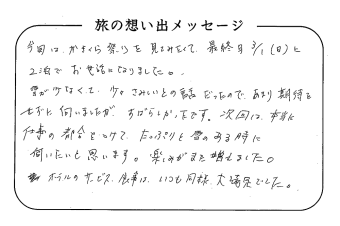 旅の想い出メッセージ
今回は、かまくら祭りを見てみたくて、最終日 3/1(日)に
2泊でお世話になりました。
雪が少なくて、少々さみしいとの話だったので、あまり期待を
せずに伺いましたが、すばらしかったです。次回は、本当に
仕事の都合をつけて、たっぷりと雪のある時に
伺いたいと思います。楽しみがまた増えました。
ホテルのサービス、食事は、いつも同様、大満足でした。